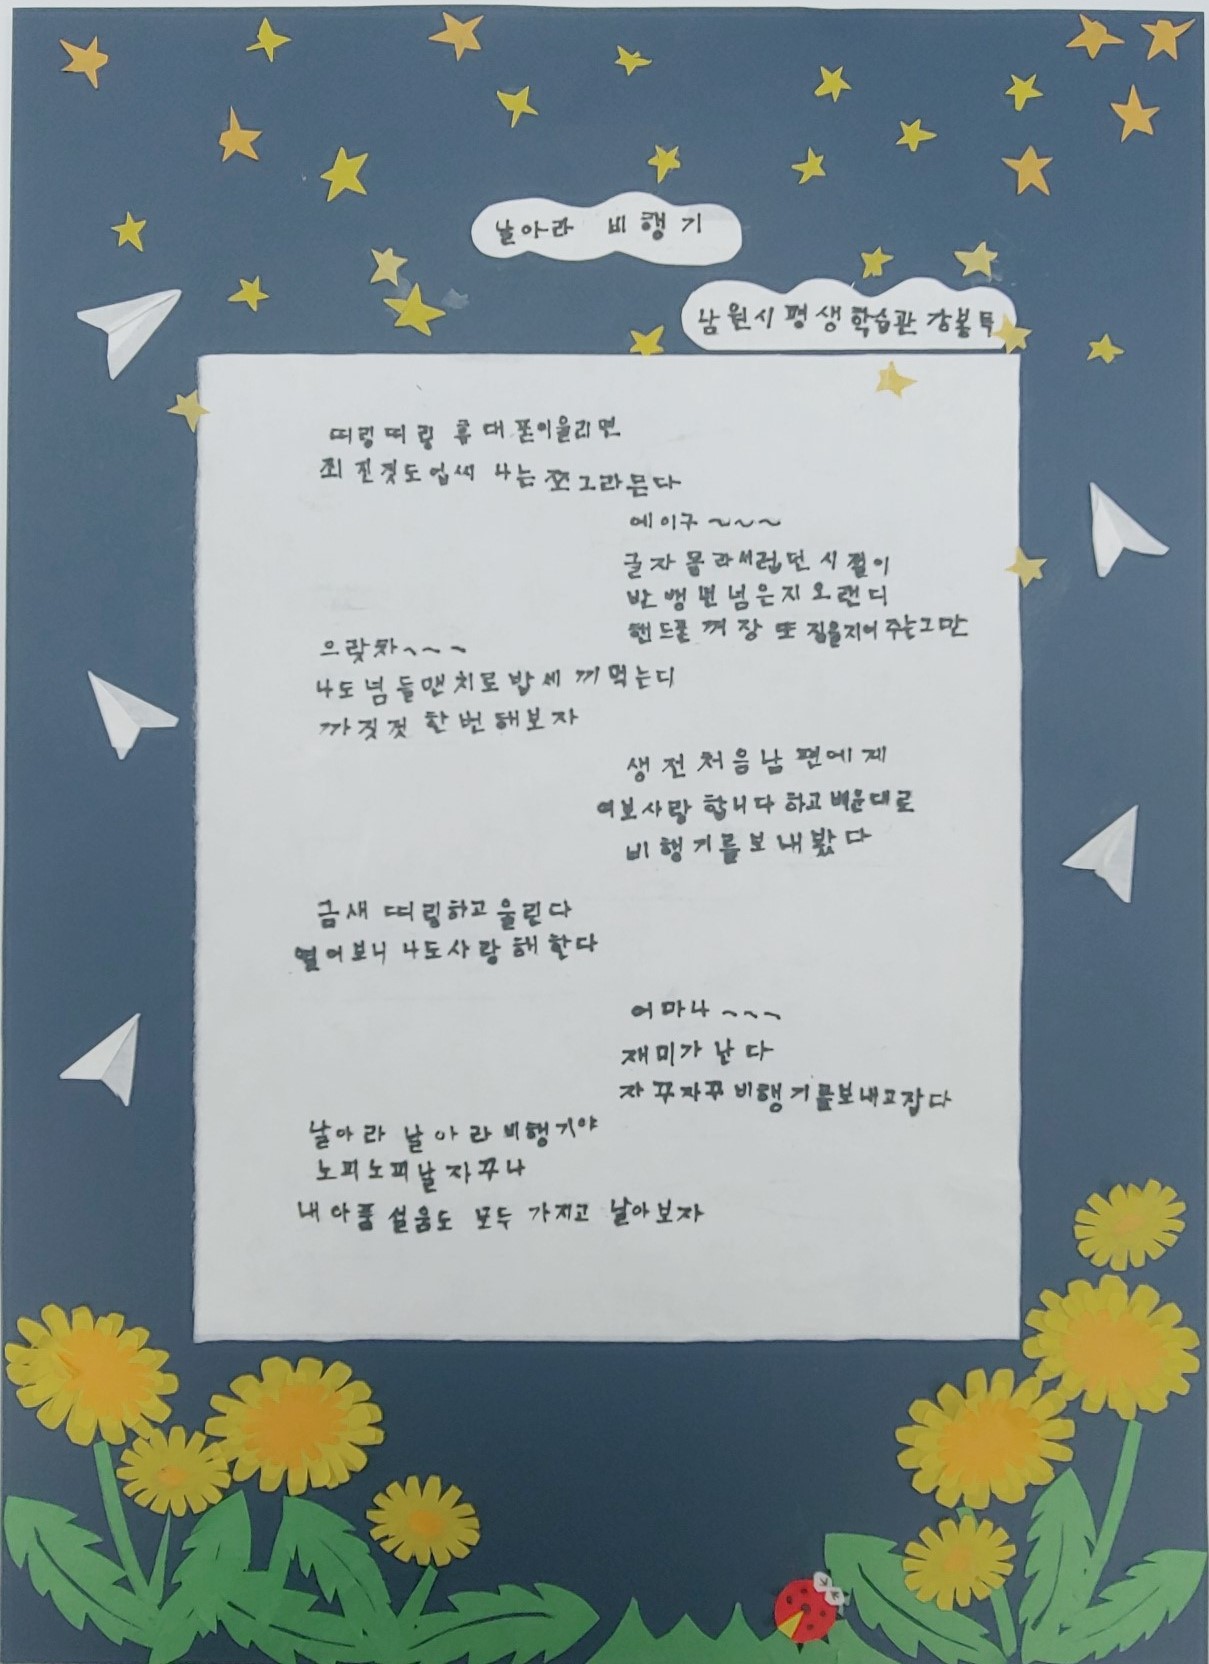 날아라 비행기
남원시평생학습관 강봉득
띠링띠링 휴대폰이울리면
죄 진것도업씨 나는 쪼그라든다
에이구~~~
글자 몰라서럽던 시절이
반 뱅년 넘은지 오랜디
핸드폰 꺼정 또 짐을지어 주는그만
으랏챠~~~
나도 넘들맨치로 밥 세 끼 먹는디
까짓것 한번 해보자
생전처음남편에게
여보사랑 합니다 하고 벼운대로
비행기를보내봤다
금새 띠링하고 울린다
열어보니 나도사랑해 한다
어마나~~~
재미가 난다
자꾸자꾸 비행기를보내고잡다
날아라 날아라 비행기야
노피노피날자꾸나
내아품 설움도 모두 가지고 날아보자